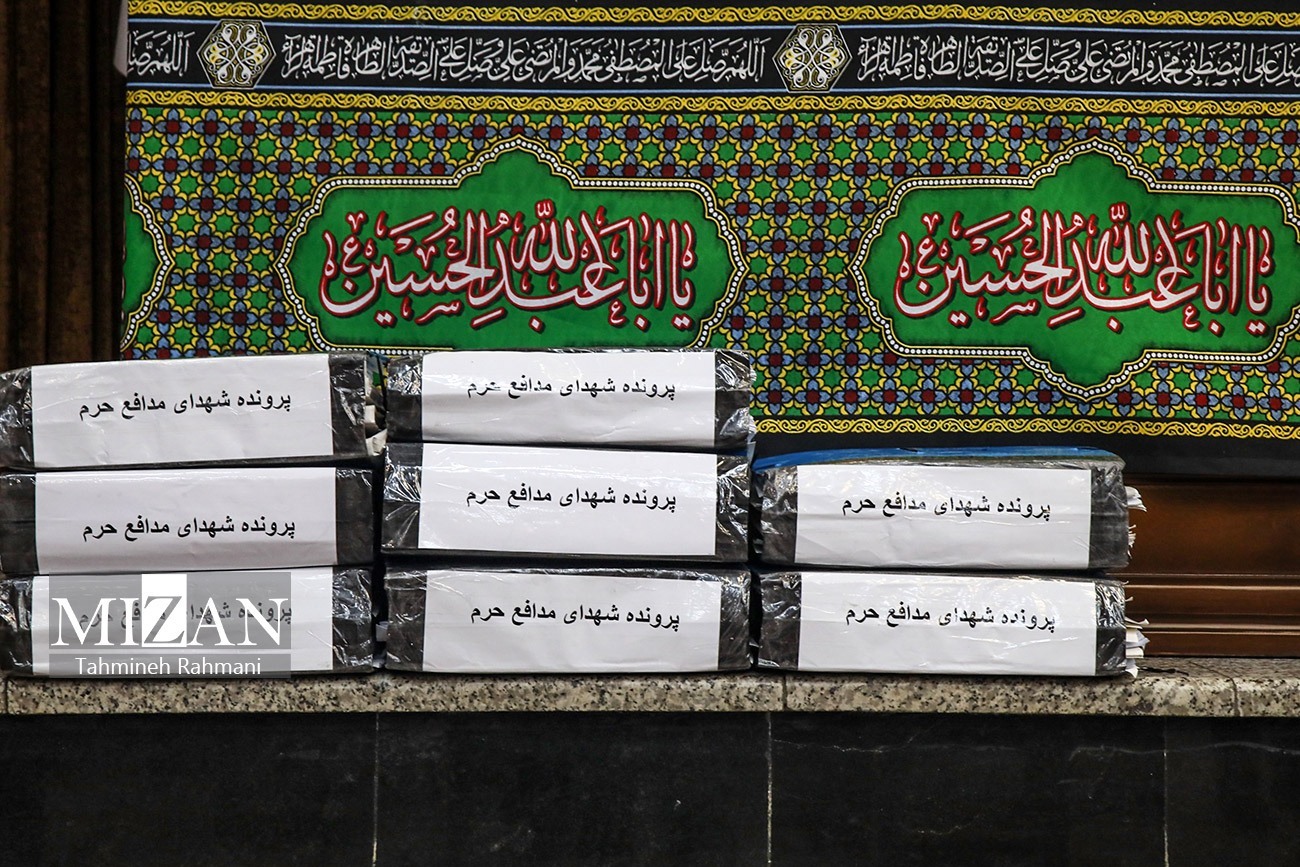 اللهم صل علی المصطفی محمد والمرتضی علی وصل علی الصدیقة الطاهرة فاطمة الزهراء
اللهم صل علی المصطفی محمد والمرتضی علی وصل علی الصدیقة الطاهرة فاطمة الزهراء
یا ابا عبد الله الحسین ع
یا ابا عبد الله الحسین ع
پرونده شهدای مدافع حرم
پرونده شهدای مدافع حرم
پرونده شهدای مدافع حرم
پرونده شهدای مدافع حرم
پرونده شهدای مدافع حرم
پرونده شهدای مدافع حرم
پرونده شهدای مدافع حرم
پرونده شهدای مدافع حرم
MIZAN
Tahmineh Rahmani